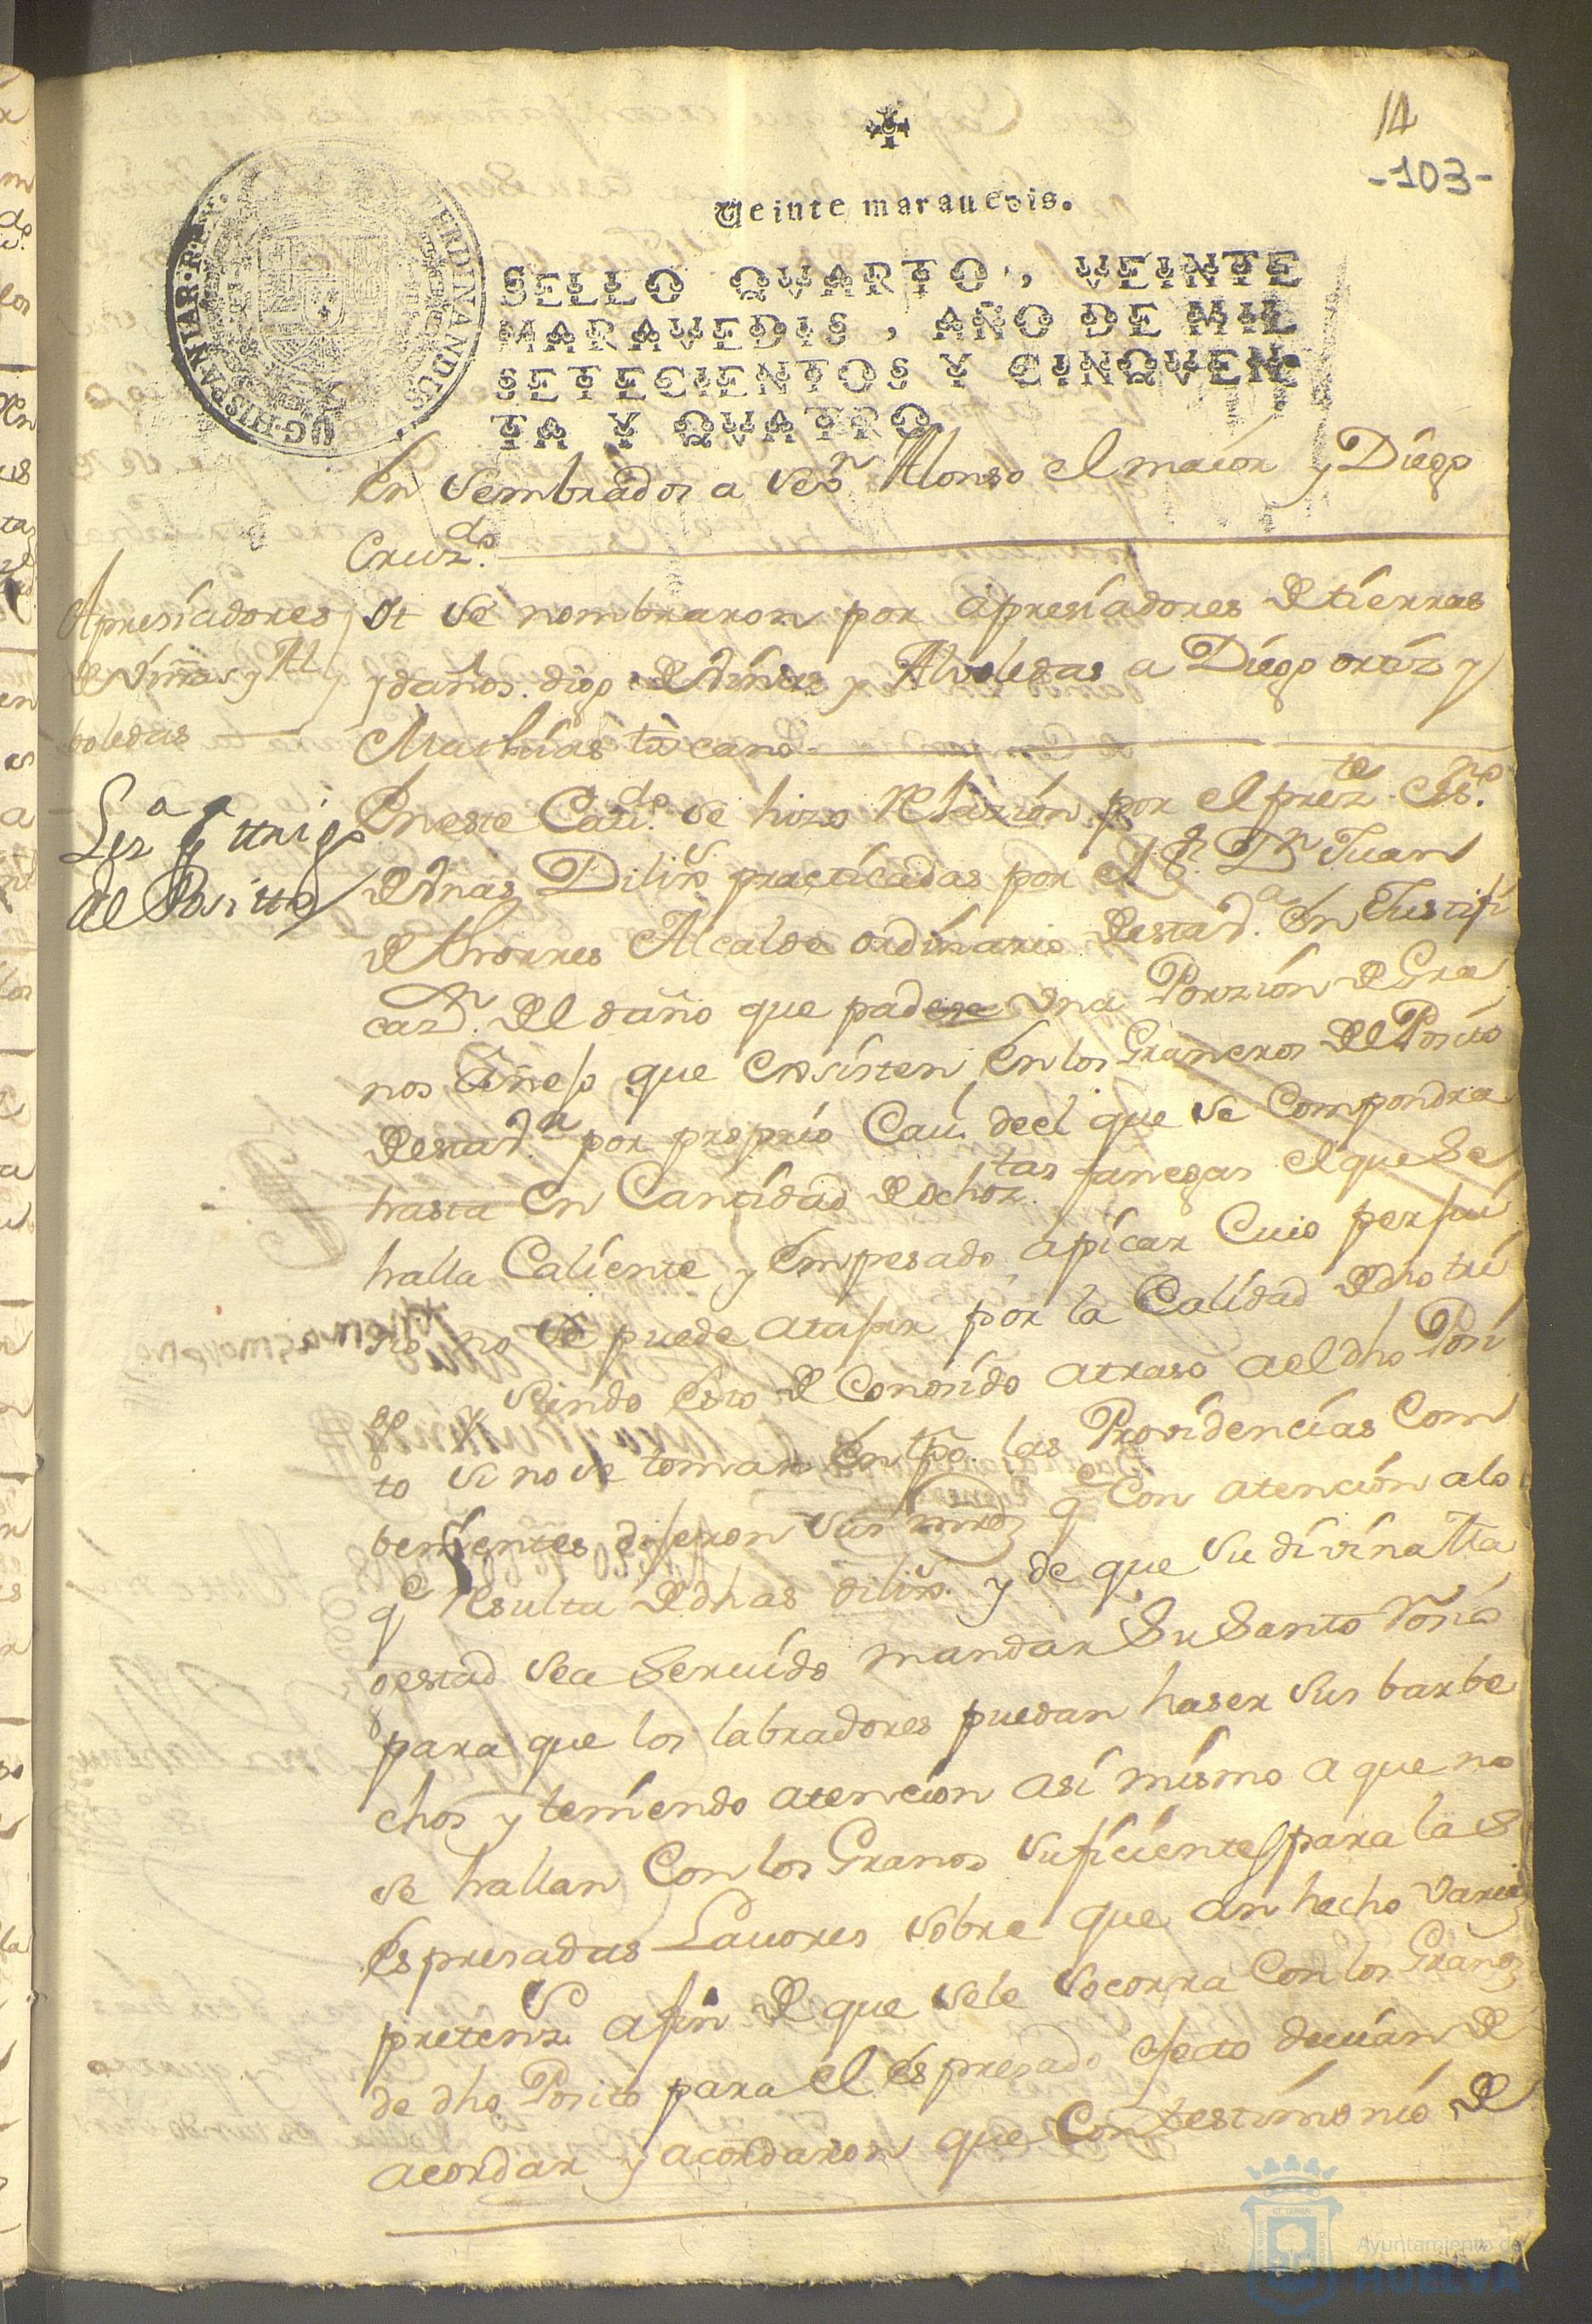 14
-103-
Veinte maravedis.
SELLO QVARTO, VEINTE
MARAVEDIS, AÑO DE MIL
SETECIENTOS Y CINQVEN
TA Y QVATRO.
HISPANIAR. R.
FERDINANDUS
en sembrador a Sevn Alonso el maior y Diego
Cruzdo.
Apresiadores
de Viñas y Al
boledas
Yt se nombraron por apresiadores de tierras
y daños digo de Viñas y Alvoledas a Diego ortiz y
Mathias tuscano
del Positto
En este Cavdo. se hizo Relazion por el preste. essno.
de Vnas Dilixs practicadas por el Sr. Dn Juan
de thorres Alcalde ordinario de esta Va. en Justifi
cazn. del daño que padese Vna Porzion de Gra
nos Añejo que existen en los Graneros del Posito
de esta Va. por proprio Cau. de el que se Compondra
hasta en Cantidad de ochoztas fanegas el que se
halla Caliente y empesado a picar Cuio perjui
sio no se puede atajar por la Calidad de dho tri
go y siendo esto de Conosido atraso a el dho Posi
to si no se toman en tpo. las Providencias Com
benientes dijeron sus mrds q Con atencion a lo
q resulta de dhas dilixs. y de que su divina Ma
gestad sea Seruido mandar Su Santo Rosio
para que los labradores puedan haser sus barbe
chos y teniendo atencion asi mismo a que no
se hallan Con los Granos suficientes para las
espresadas Lauores sobre que an hecho Varias
pretenzs. a fin de que se le socorra Con los Granos
de dho Posito para el espresado efecto deuian de
acordar y acordaron que Con testimonio de
Ayuntamiento de
HUELVA